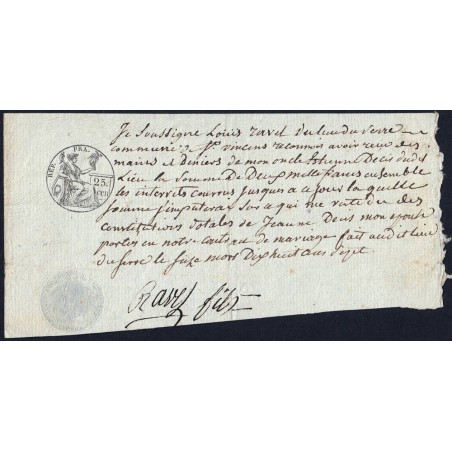 REP. FRA.
25.
CEN
Je Soussigné Louis ravel du lieu du Serre
communé de St. vincens reconnois avoir reçu des
mains et Deniers de mon oncle Etienne Deus dudit
Lieu la Somme De Deux mille francs ensemble
les interrets courrus jusques a ce jour la quelle
somme j'imputerai Sur a qui me reste du des
constitutions totales de Jeanne Deus mon epouse
portes en notre contrat de mariage fait audit lieu
du serre le seize mars Dix huit cent sept
Ravel fils